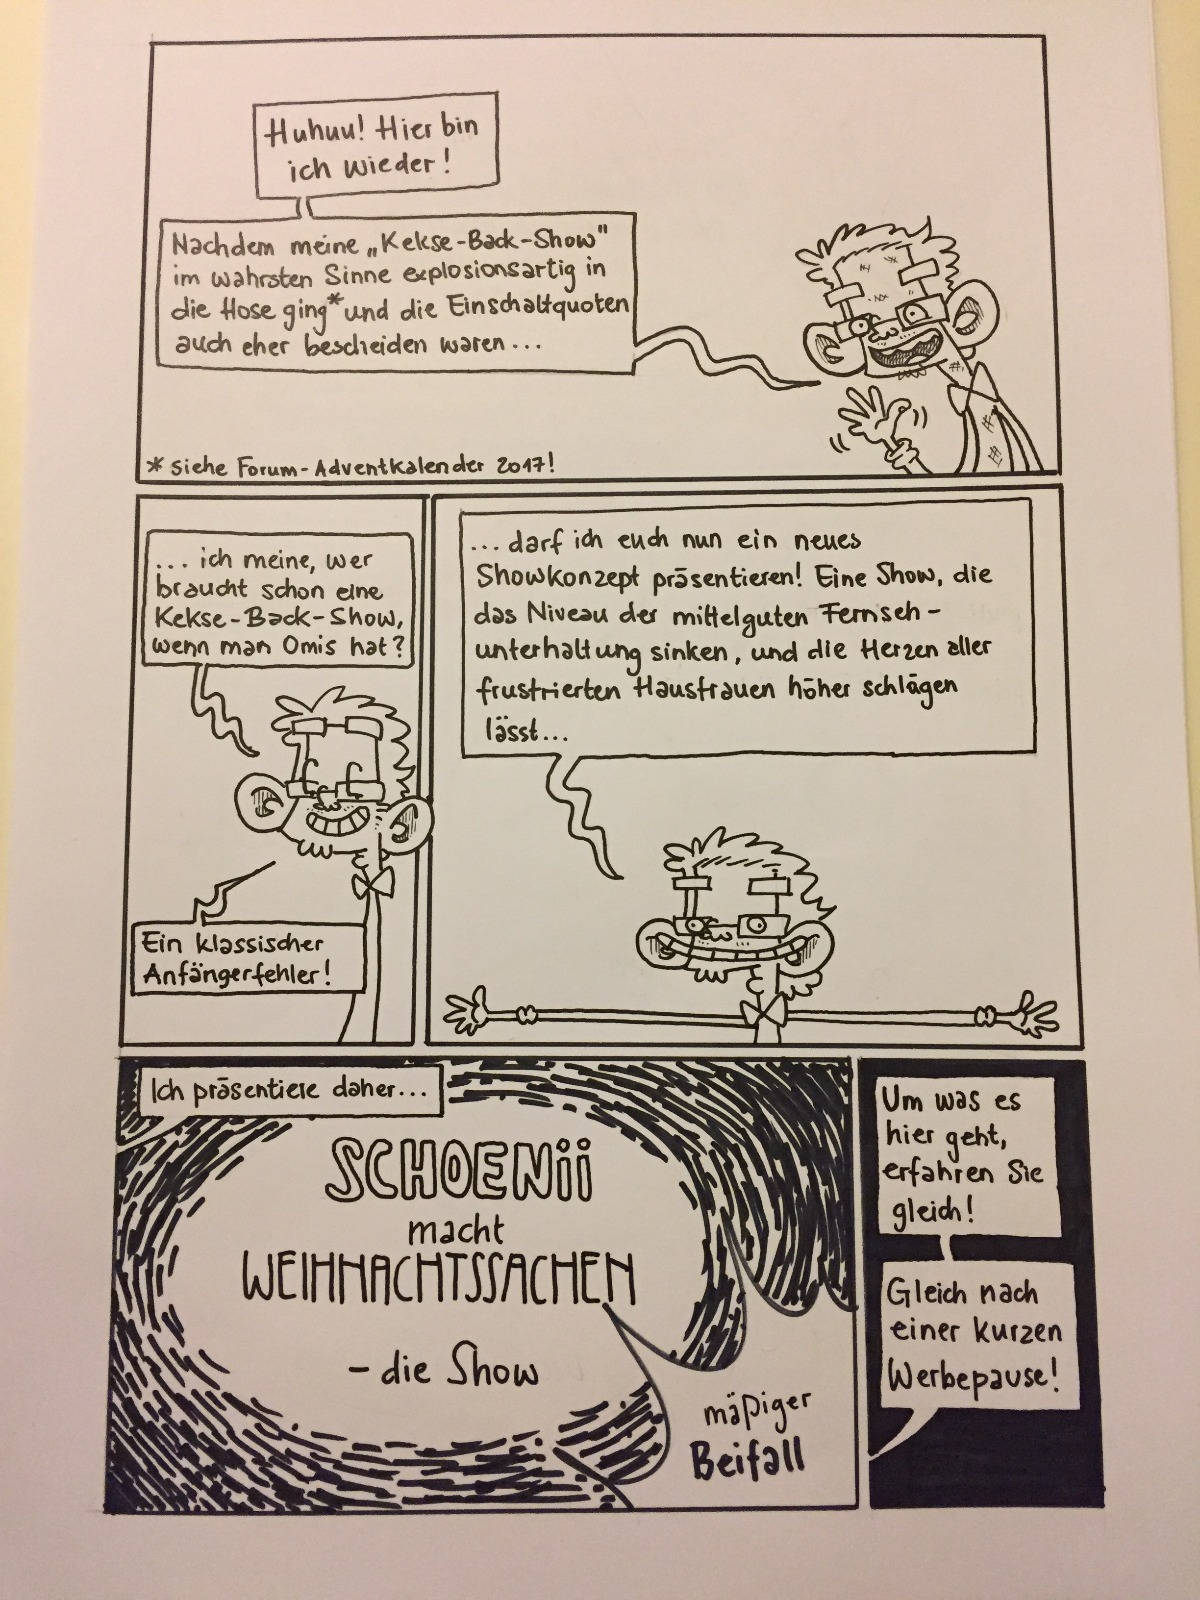 Huhuu! Hier bin
ich wieder!
Nachdem meine „Kekse-Back-Show"
im wahrsten Sinne explosionsartig in
die Hose ging* und die Einschaltquoten
auch eher bescheiden waren...
* siehe Forum-Adventkalender 2017!
...ich meine, wer
braucht schon eine
Kekse-Back-Show,
wenn man Omis hat?
Ein klassischer
Anfängerfehler!
...darf ich euch nun ein neues
Showkonzept präsentieren! Eine Show, die
das Niveau der mittelguten Fernseh-
unterhaltung sinken, und die Herzen aller
frustrierten Hausfrauen höher schlägen
lässt...
Ich präsentiere daher...
SCHOENii
macht
WEIHNACHTSSACHEN
- die Show
mäßiger
Beifall
Um was es
hier geht,
erfahren Sie
gleich!
Gleich nach
einer kurzen
Werbepause!